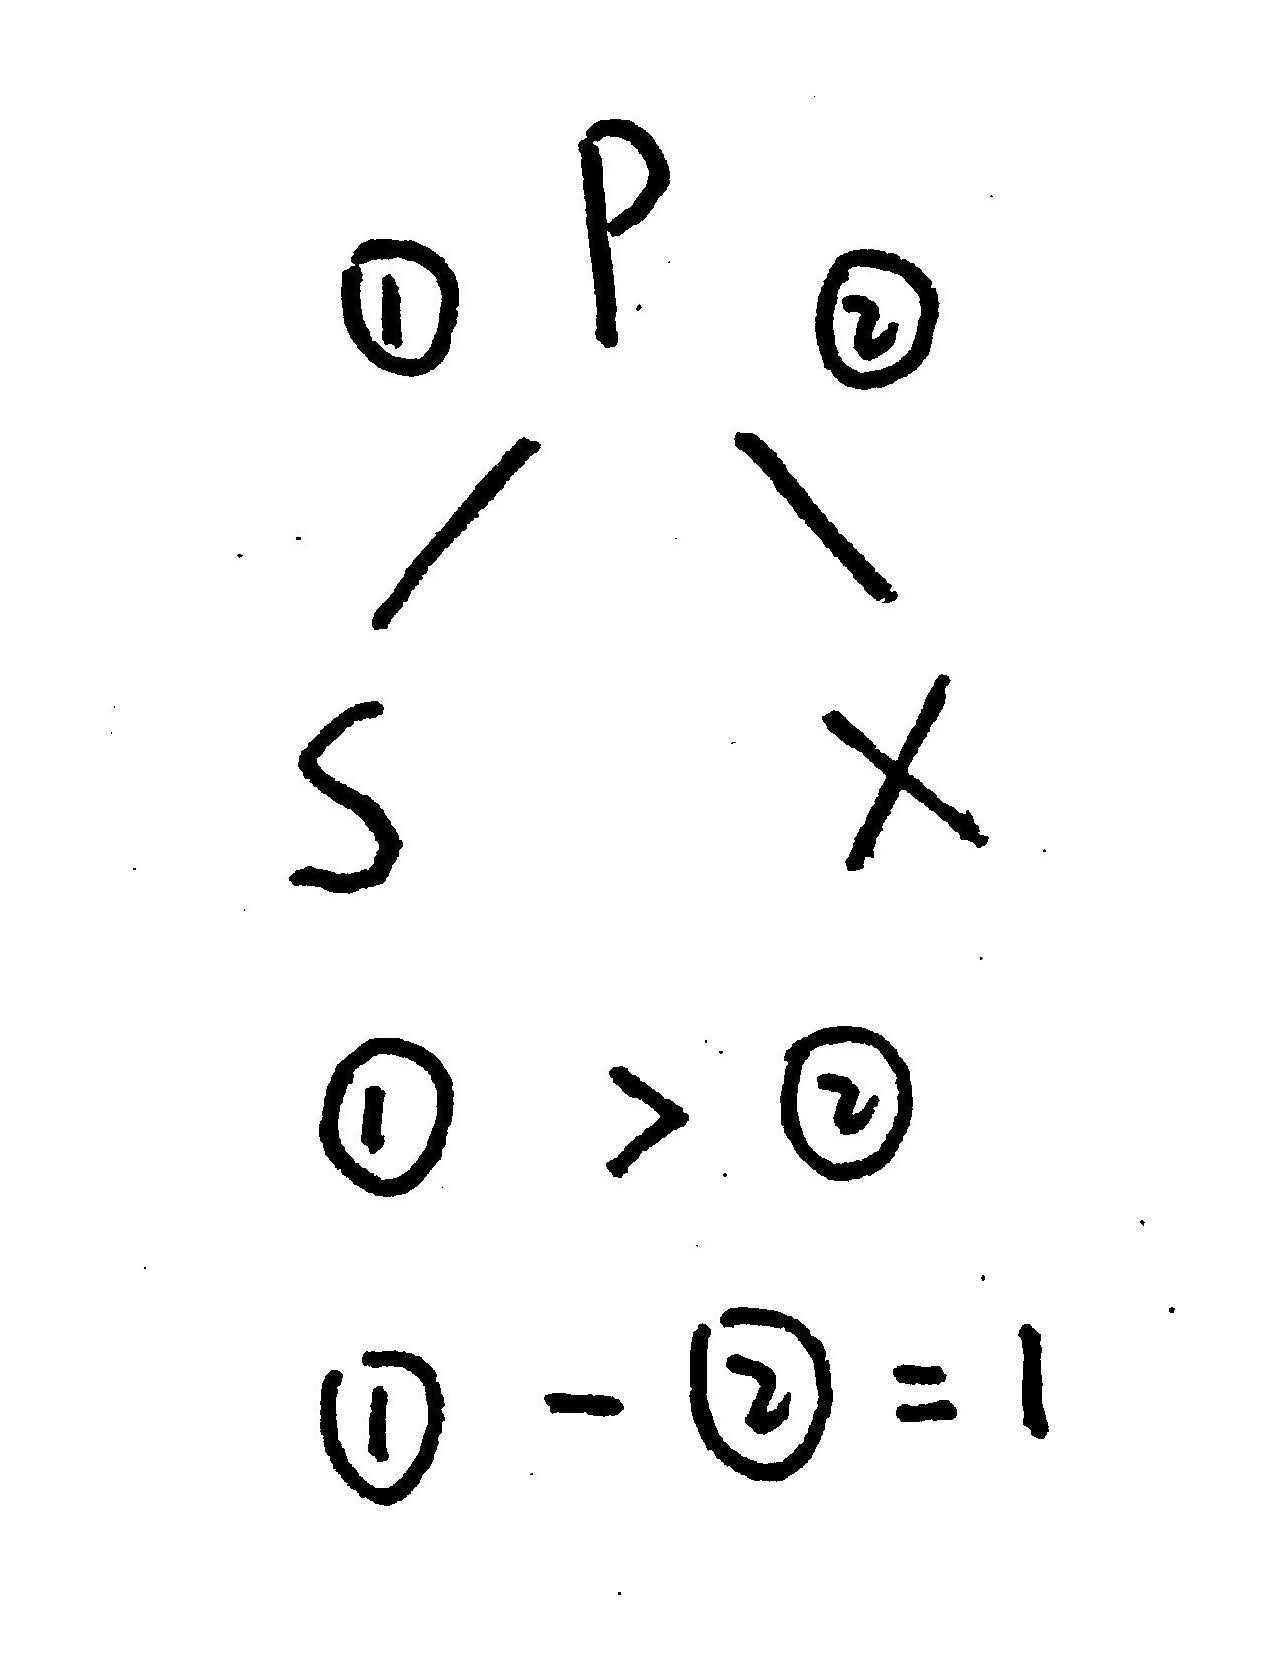 P
① ②
S X
① > ②
① - ② = 1